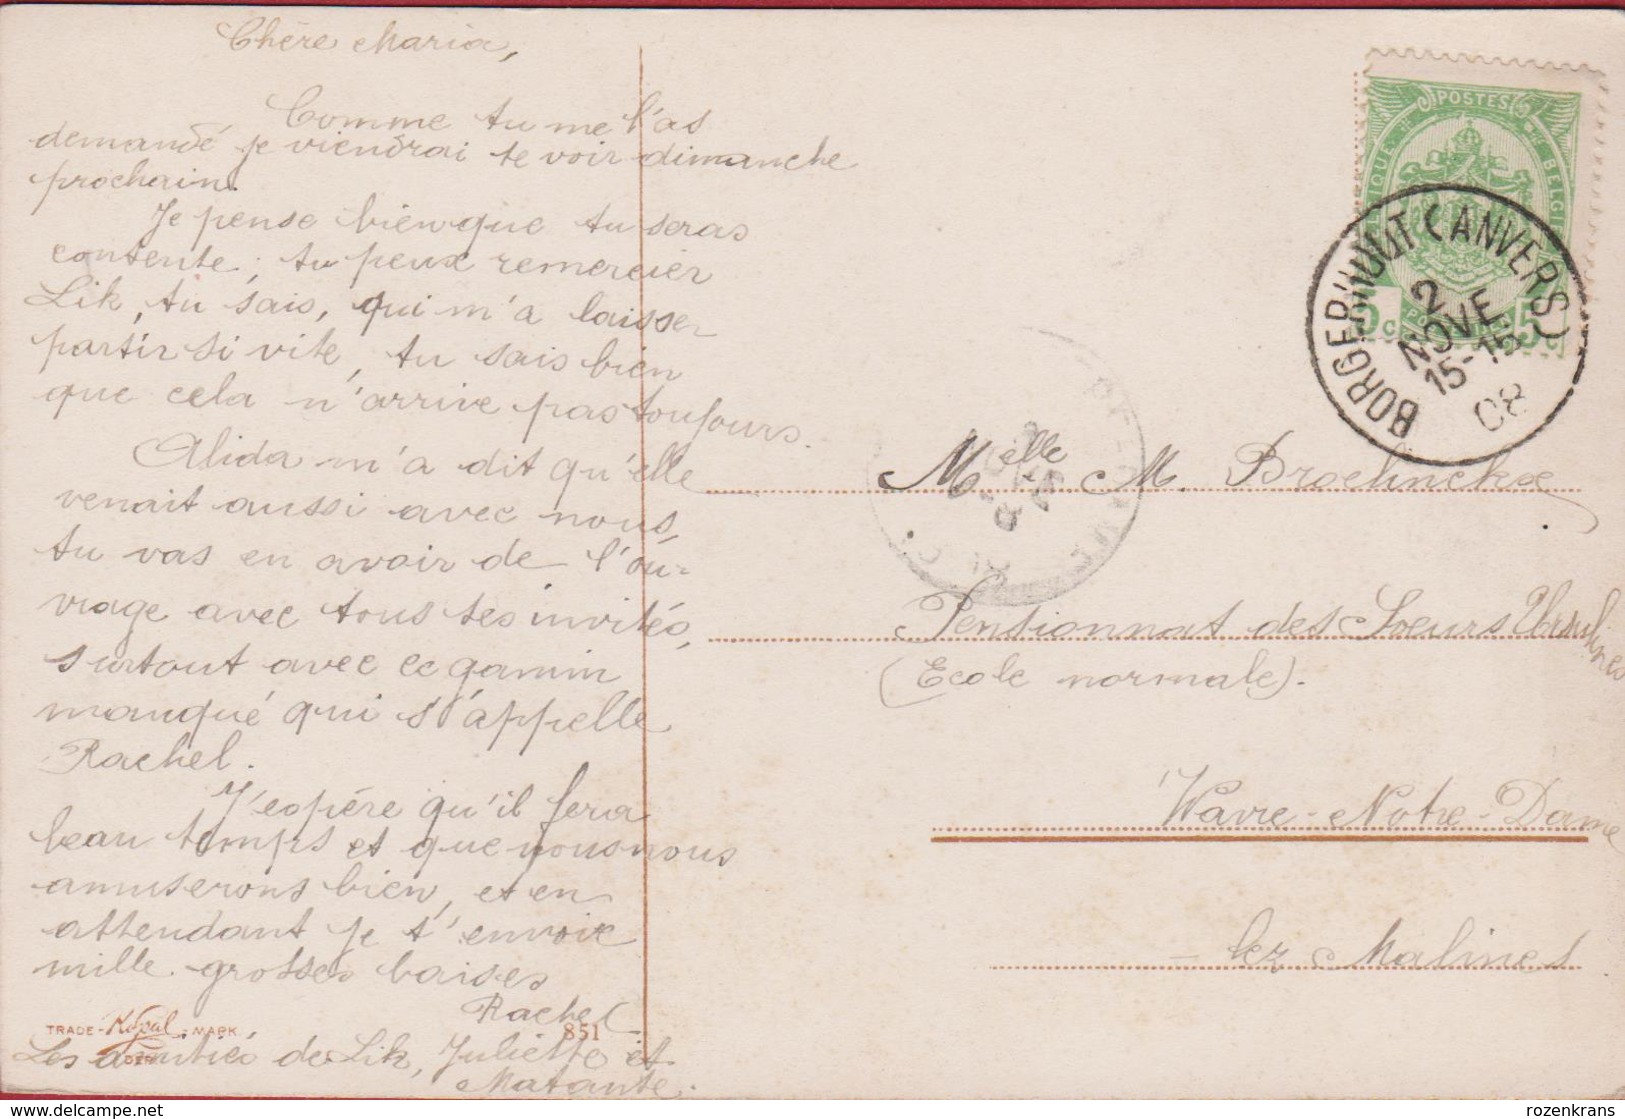 Chère Maria,
Comme tu me l'as
demandé je viendrai te voir dimanche
prochain.
Je pense bien que tu seras
contente, tu peux remercier
Lik, tu sais, qui m'a laisser
partir si vite, tu sais bien
que cela n'arrive pas toujours.
Alida m'a dit qu'elle
venait aussi avec nous,
tu vas en avoir de l'ou-
vrage avec tous tes invités,
surtout avec ce gamin
manqué qui s'appelle
Rachel.
J'espére qu'il fera
beau temps et que nous nous
amuserons bien, et en
attendant je t'envoie
mille grosses baises
Rachel
TRADE - Kopal - MARK
851
Les amitiés de Lik, Juliette et
Matante.
POSTES
BELGIQUE
5 c 5
BORGERHOUT (ANVERS)
2
NOVE
15-15
08
Melle M. Broelinckx
Pensionnat des Soeurs Ursulines
(Ecole normale).
Wavre-Notre-Dame
- lez Malines
delcampe.net
rozenkrans